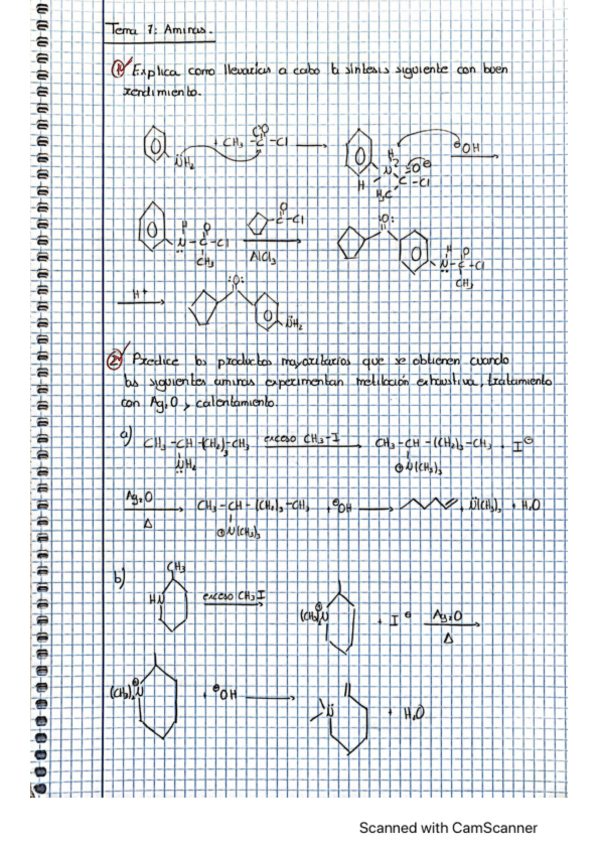 Tema 7: Aminas.
1 Explica como llevarías a cabo la síntesis siguiente con buen
rendimiento.
+ CH3 -C-Cl
O
N̈H2
H
N
H
H3C
O
C -Cl
⊖OH
H
N - C -Cl
O
CH3
O
C -Cl
AlCl3
:O:
H
N - C -Cl
O
CH3
H+
:O:
N̈H2
2 Predice los productos mayoritarios que se obtienen cuando
las siguientes aminas experimentan metilación exhaustiva, tratamiento
con Ag2O y calentamiento.
a) CH3 -CH -(CH2)3-CH3 exceso CH3-I CH3-CH -(CH2)3-CH3 + I⊖
N̈H2 ⊕N(CH3)3
Ag2O CH3-CH - (CH2)3-CH3 + ⊖OH N̈(CH3)3 + H2O
Δ ⊕N(CH3)3
b) CH3
HN exceso CH3I (CH3)2N⊕ + I⊖ Ag2O
Δ
(CH3)2N⊕ + ⊖OH N̈ + H2O
Scanned with CamScanner